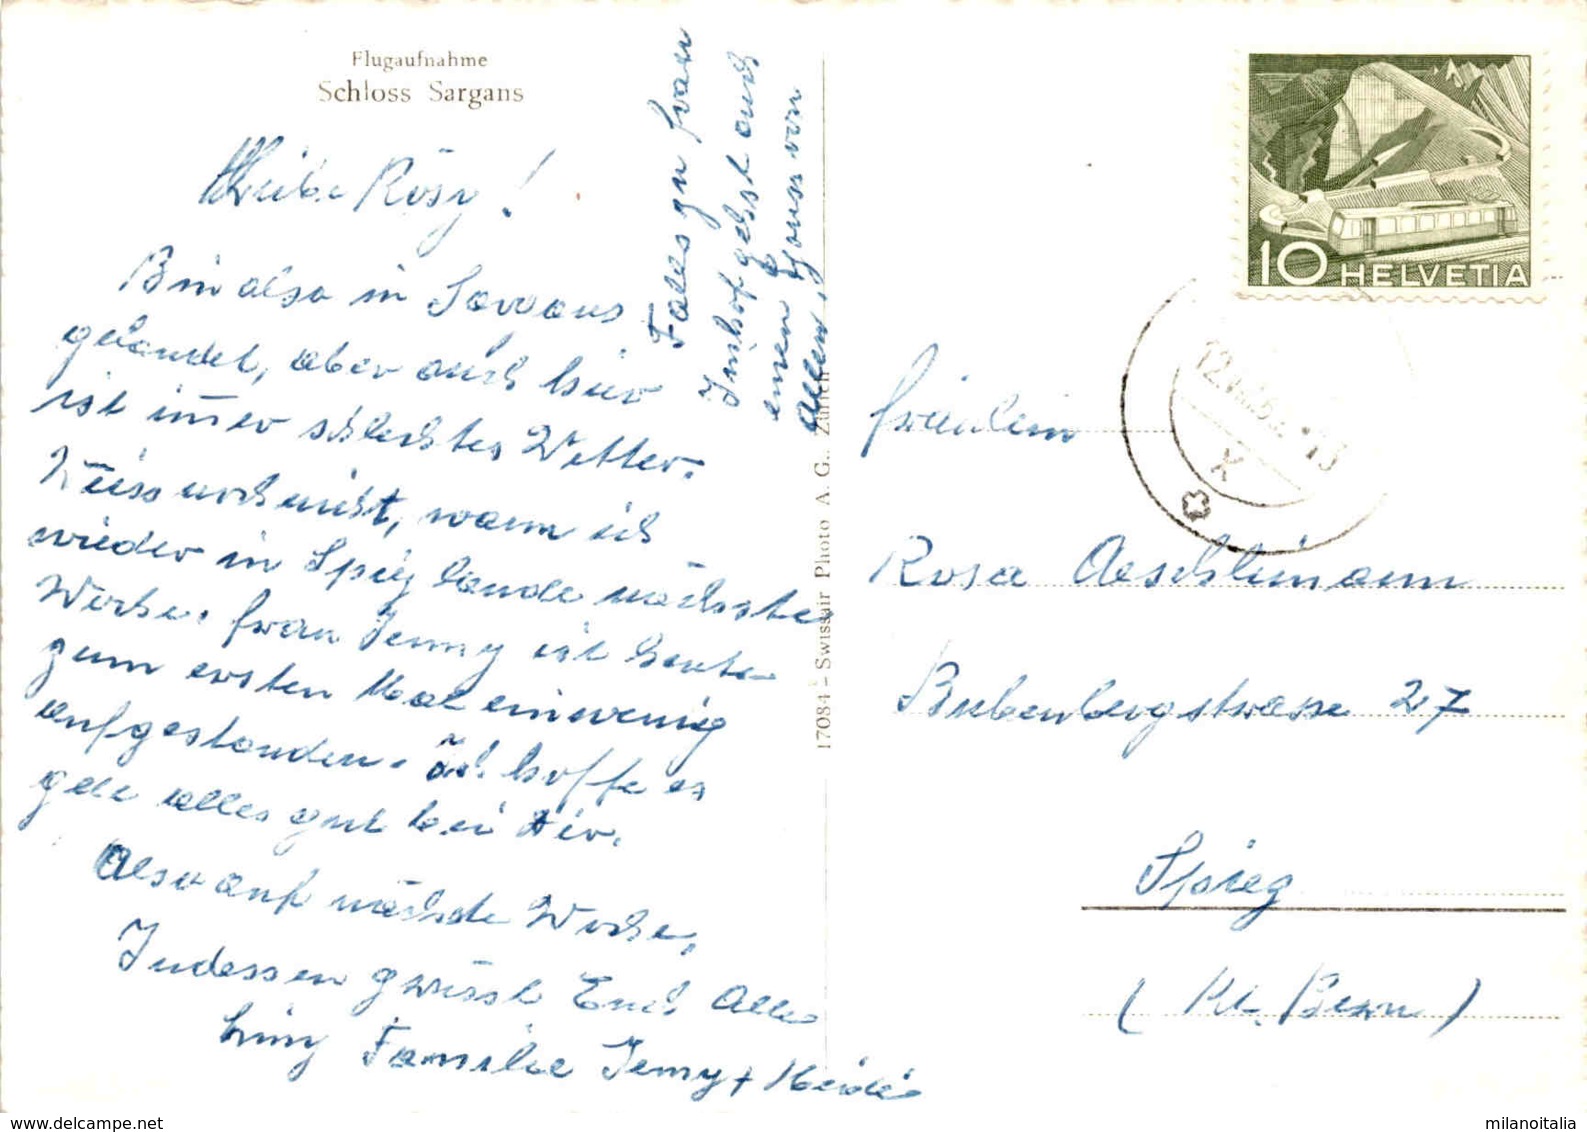 Flugaufnahme
Schloss Sargans
Liebe Rösy!
Bin also in Sargans
gelandet, aber auch hier
ist im̄er schlechtes Wetter.
Weiss noch nicht, wann ich
wieder in Spiez lande nächste
Woche. Frau Jenny ist heute
zum ersten Mal ein wenig
aufgestanden. Ich hoffe es
gehe alles gut bei Dir.
Also auf nächste Woche,
Indessen grüsst Euch Alle
Familie Jenny + Heidi
Falls zu Frau
Imhof gehst auch
einen Gruss von
allen,
17084 - Swissair Photo A. G., Zürich
10 HELVETIA
X
Fräulein
Rosa Aeschlimann
Bubenbergstrasse 27
Spiez
(Kt. Bern)
delcampe.net
milanoitalia